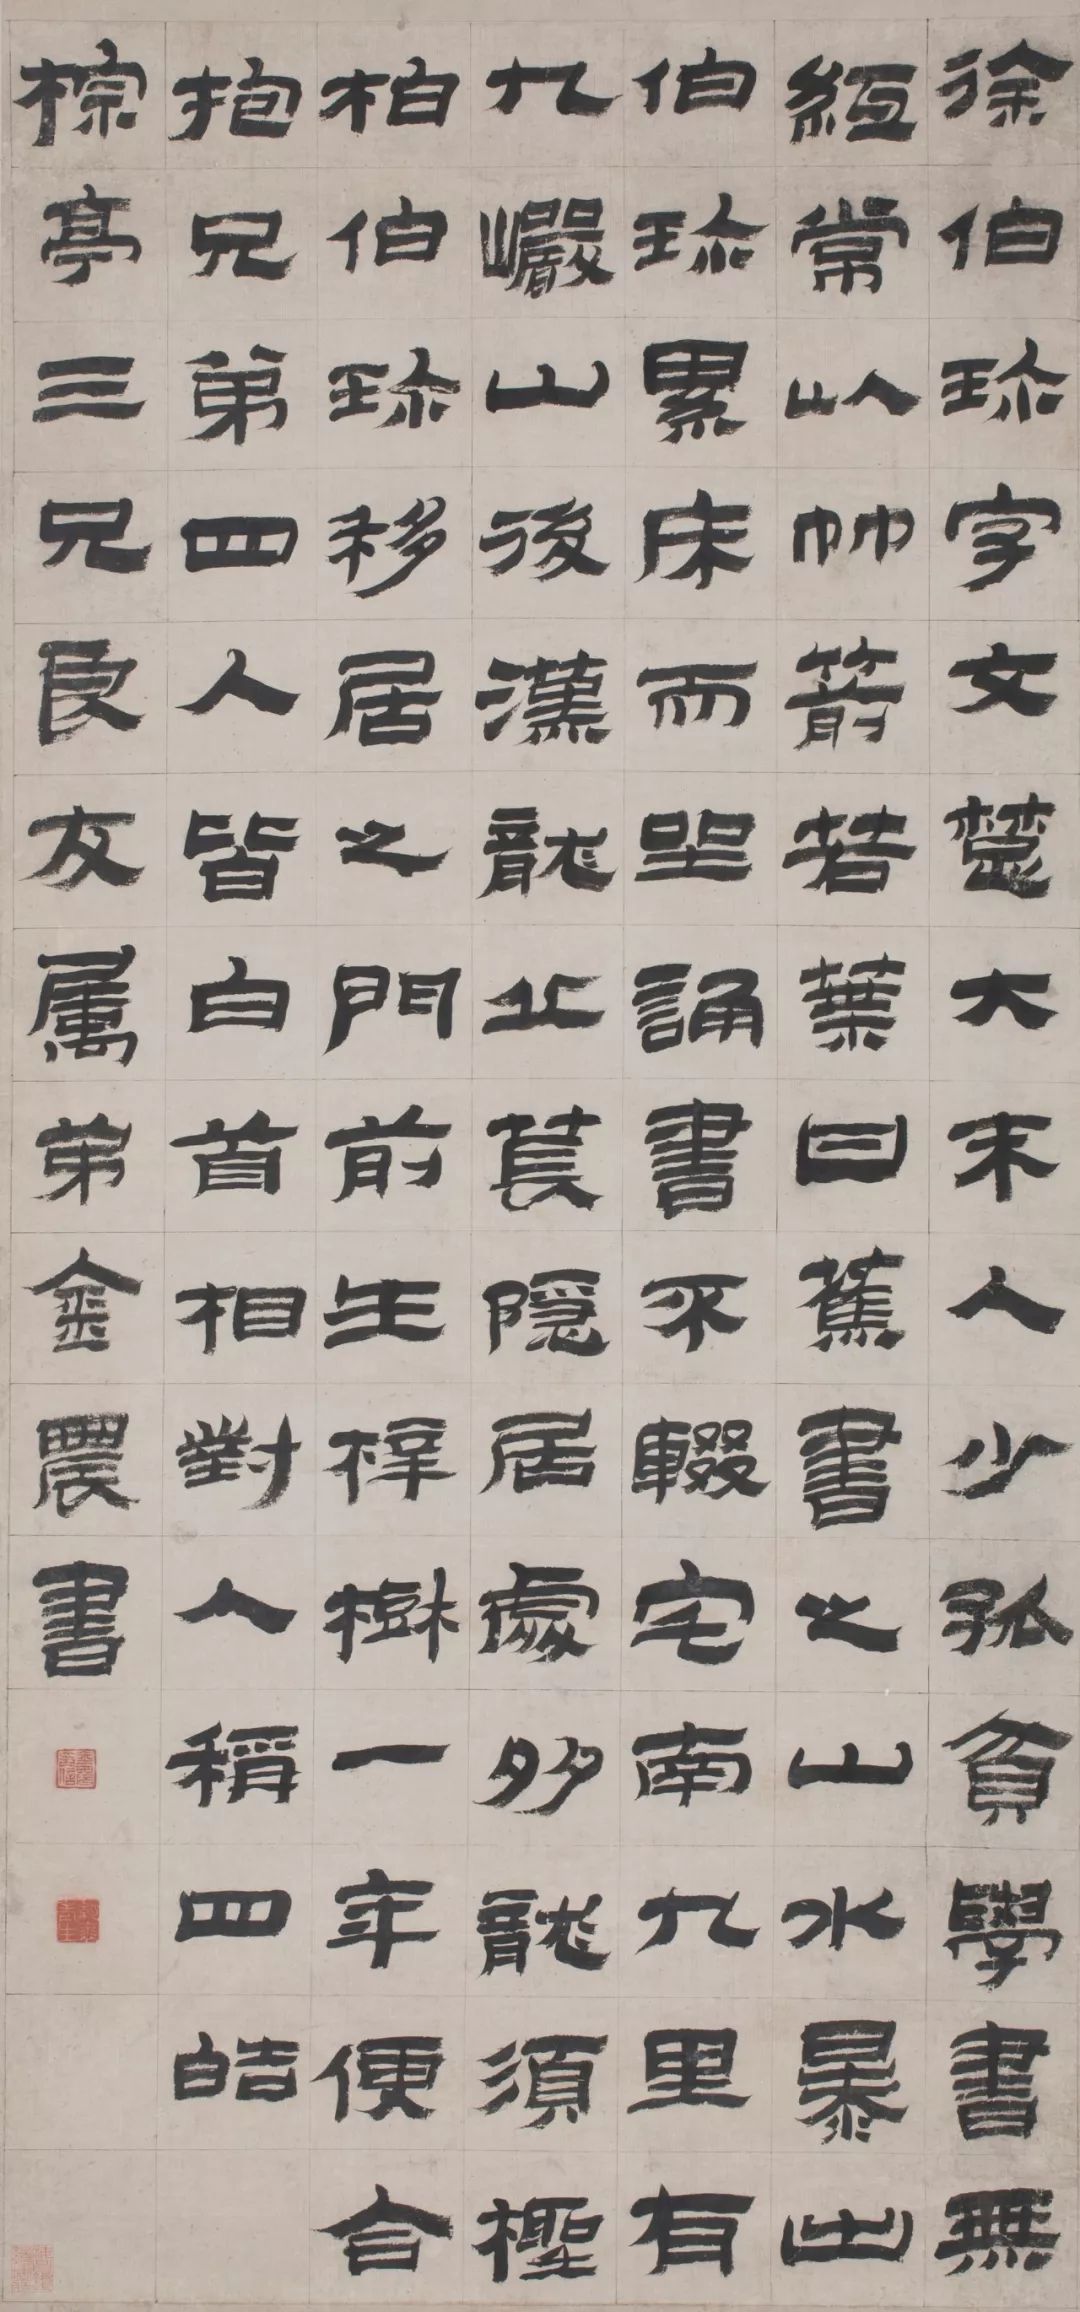 徐伯珎字文楚大末人少孤貧學書無
紙常以竹箭若葉甘蕉書之山水暴出
伯珎累床而坐誦書不輟宅南九里有
九巖山後漢龍丘萇隱居處多龍須檉
柏伯珎移居之門前生梓樹一年便合
抱兄弟四人皆白首相對人稱四皓
棕亭三兄良友属弟金農書